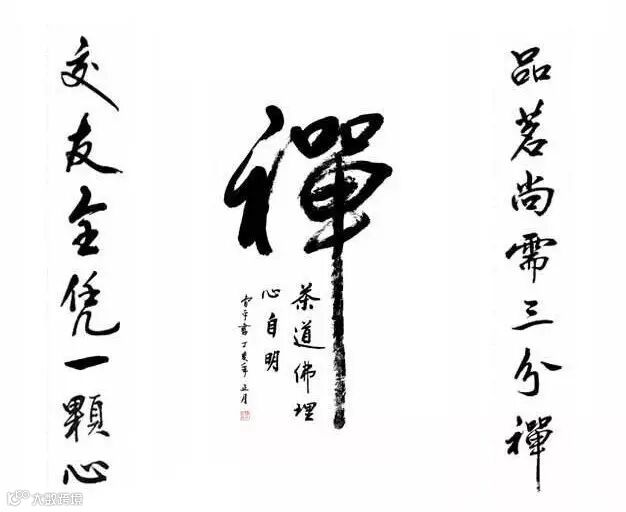 品茗尚需三分禪
禪
茶道佛理
心自明
丁亥年正月
交友全凭一顆心
大数跨境